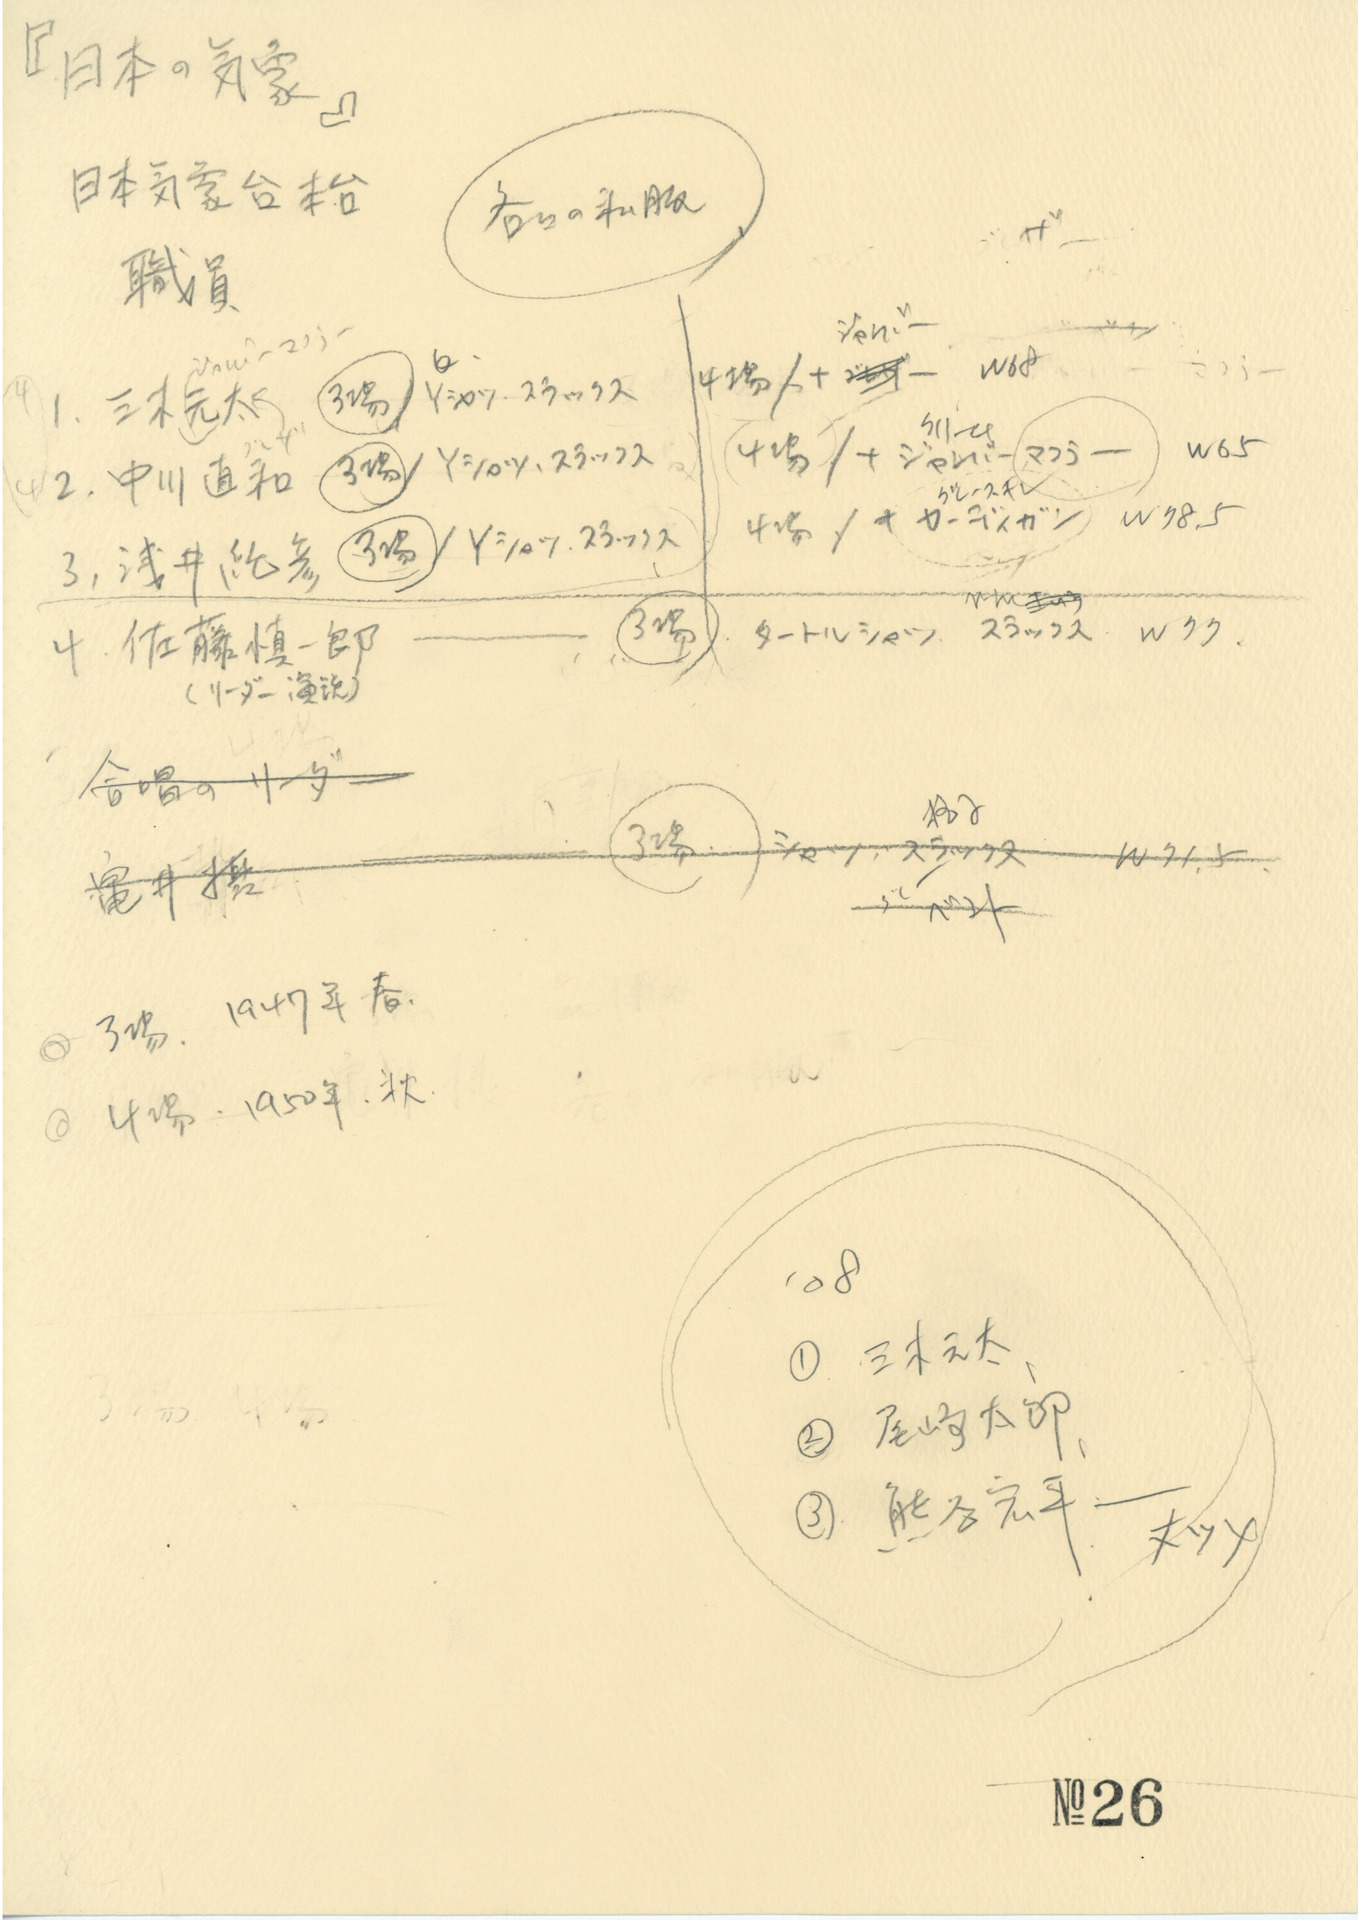 『日本の気象』
日本気象台本台
各自の私服
職員
ジャンパー マフラー
1. 三木元太 3場/ 白 Yシャツ.スラックス 4場/+ ジャンパー W68
2. 中川直和 3場/ Yシャツ、スラックス 4場/+ クリーム ジャンパー マフラー W65
3, 浅井純彦 3場/ Yシャツ.スラックス 4場/+ カーディガン W78.5
4. 佐藤慎一郎 3場. タートルシャツ. スラックス. W77.
(リーダー演説)
合唱のリーダー
亀井 3場. シャツ、スラックス W71.5.
ベスト
◎ 3場. 1947年春.
◎ 4場. 1950年.秋.
'08
① 三木元太、
② 尾崎太郎、
③ 熊谷宏平
3場. 4場
№26